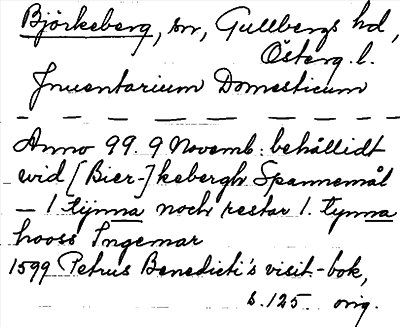 Björkeberg, sn, Gullbergs hd,
Österg. l.
Inventarium Domesticum
Anno 99. 9 Novemb: behållidt
wid [Bier-] kebergh Spannemål
– 1 tÿnna noch restar 1. tynna
hooss Ingemar
1599 Petrus Benedicti's visit.-bok,
s. 125. orig.